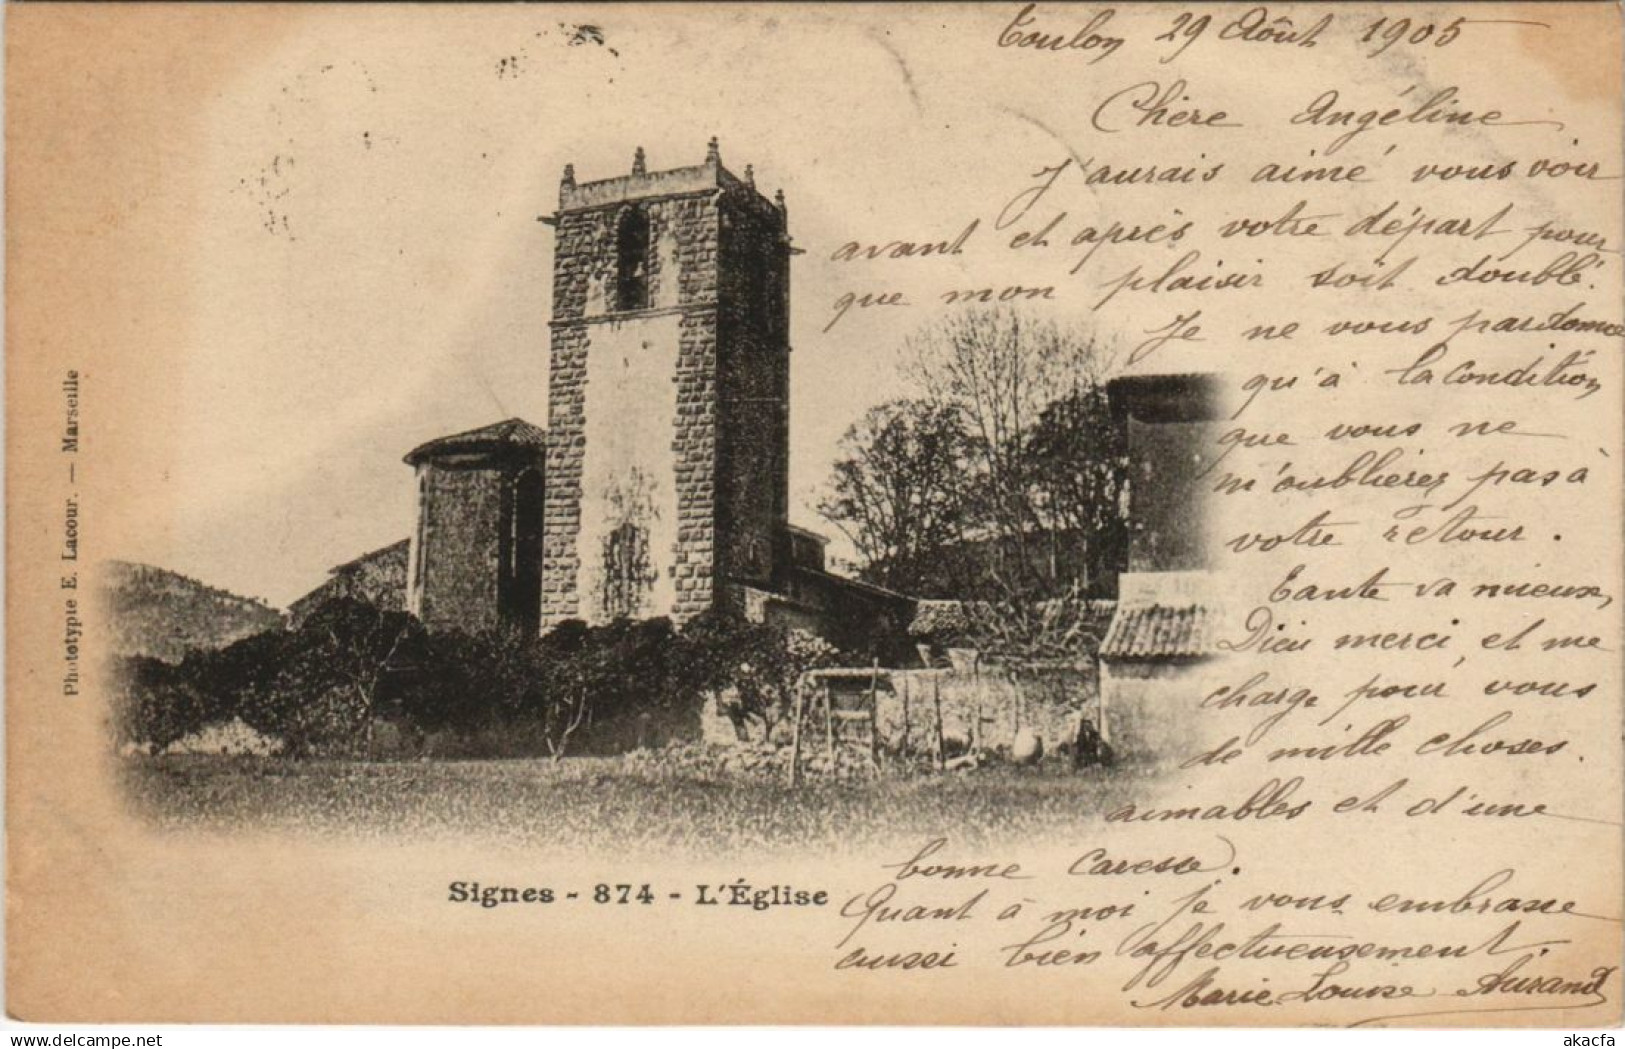 Toulon 29 Août 1905
Chère Angéline
J'aurais aimé vous voir
avant et après votre départ pour
que mon plaisir soit doublé.
Je ne vous pardonne
qu'à la condition
que vous ne
m'oublierez pas à
votre retour.
Tante va mieux,
Dieu merci, et me
charge pour vous
de mille choses.
aimables et d'une
bonne caresse.
Quant à moi je vous embrasse
aussi bien affectueusement.
Marie-Louise
Signes - 874 - L'Église
Phototypie E. Lacour. — Marseille
www.delcampe.net
akacfa